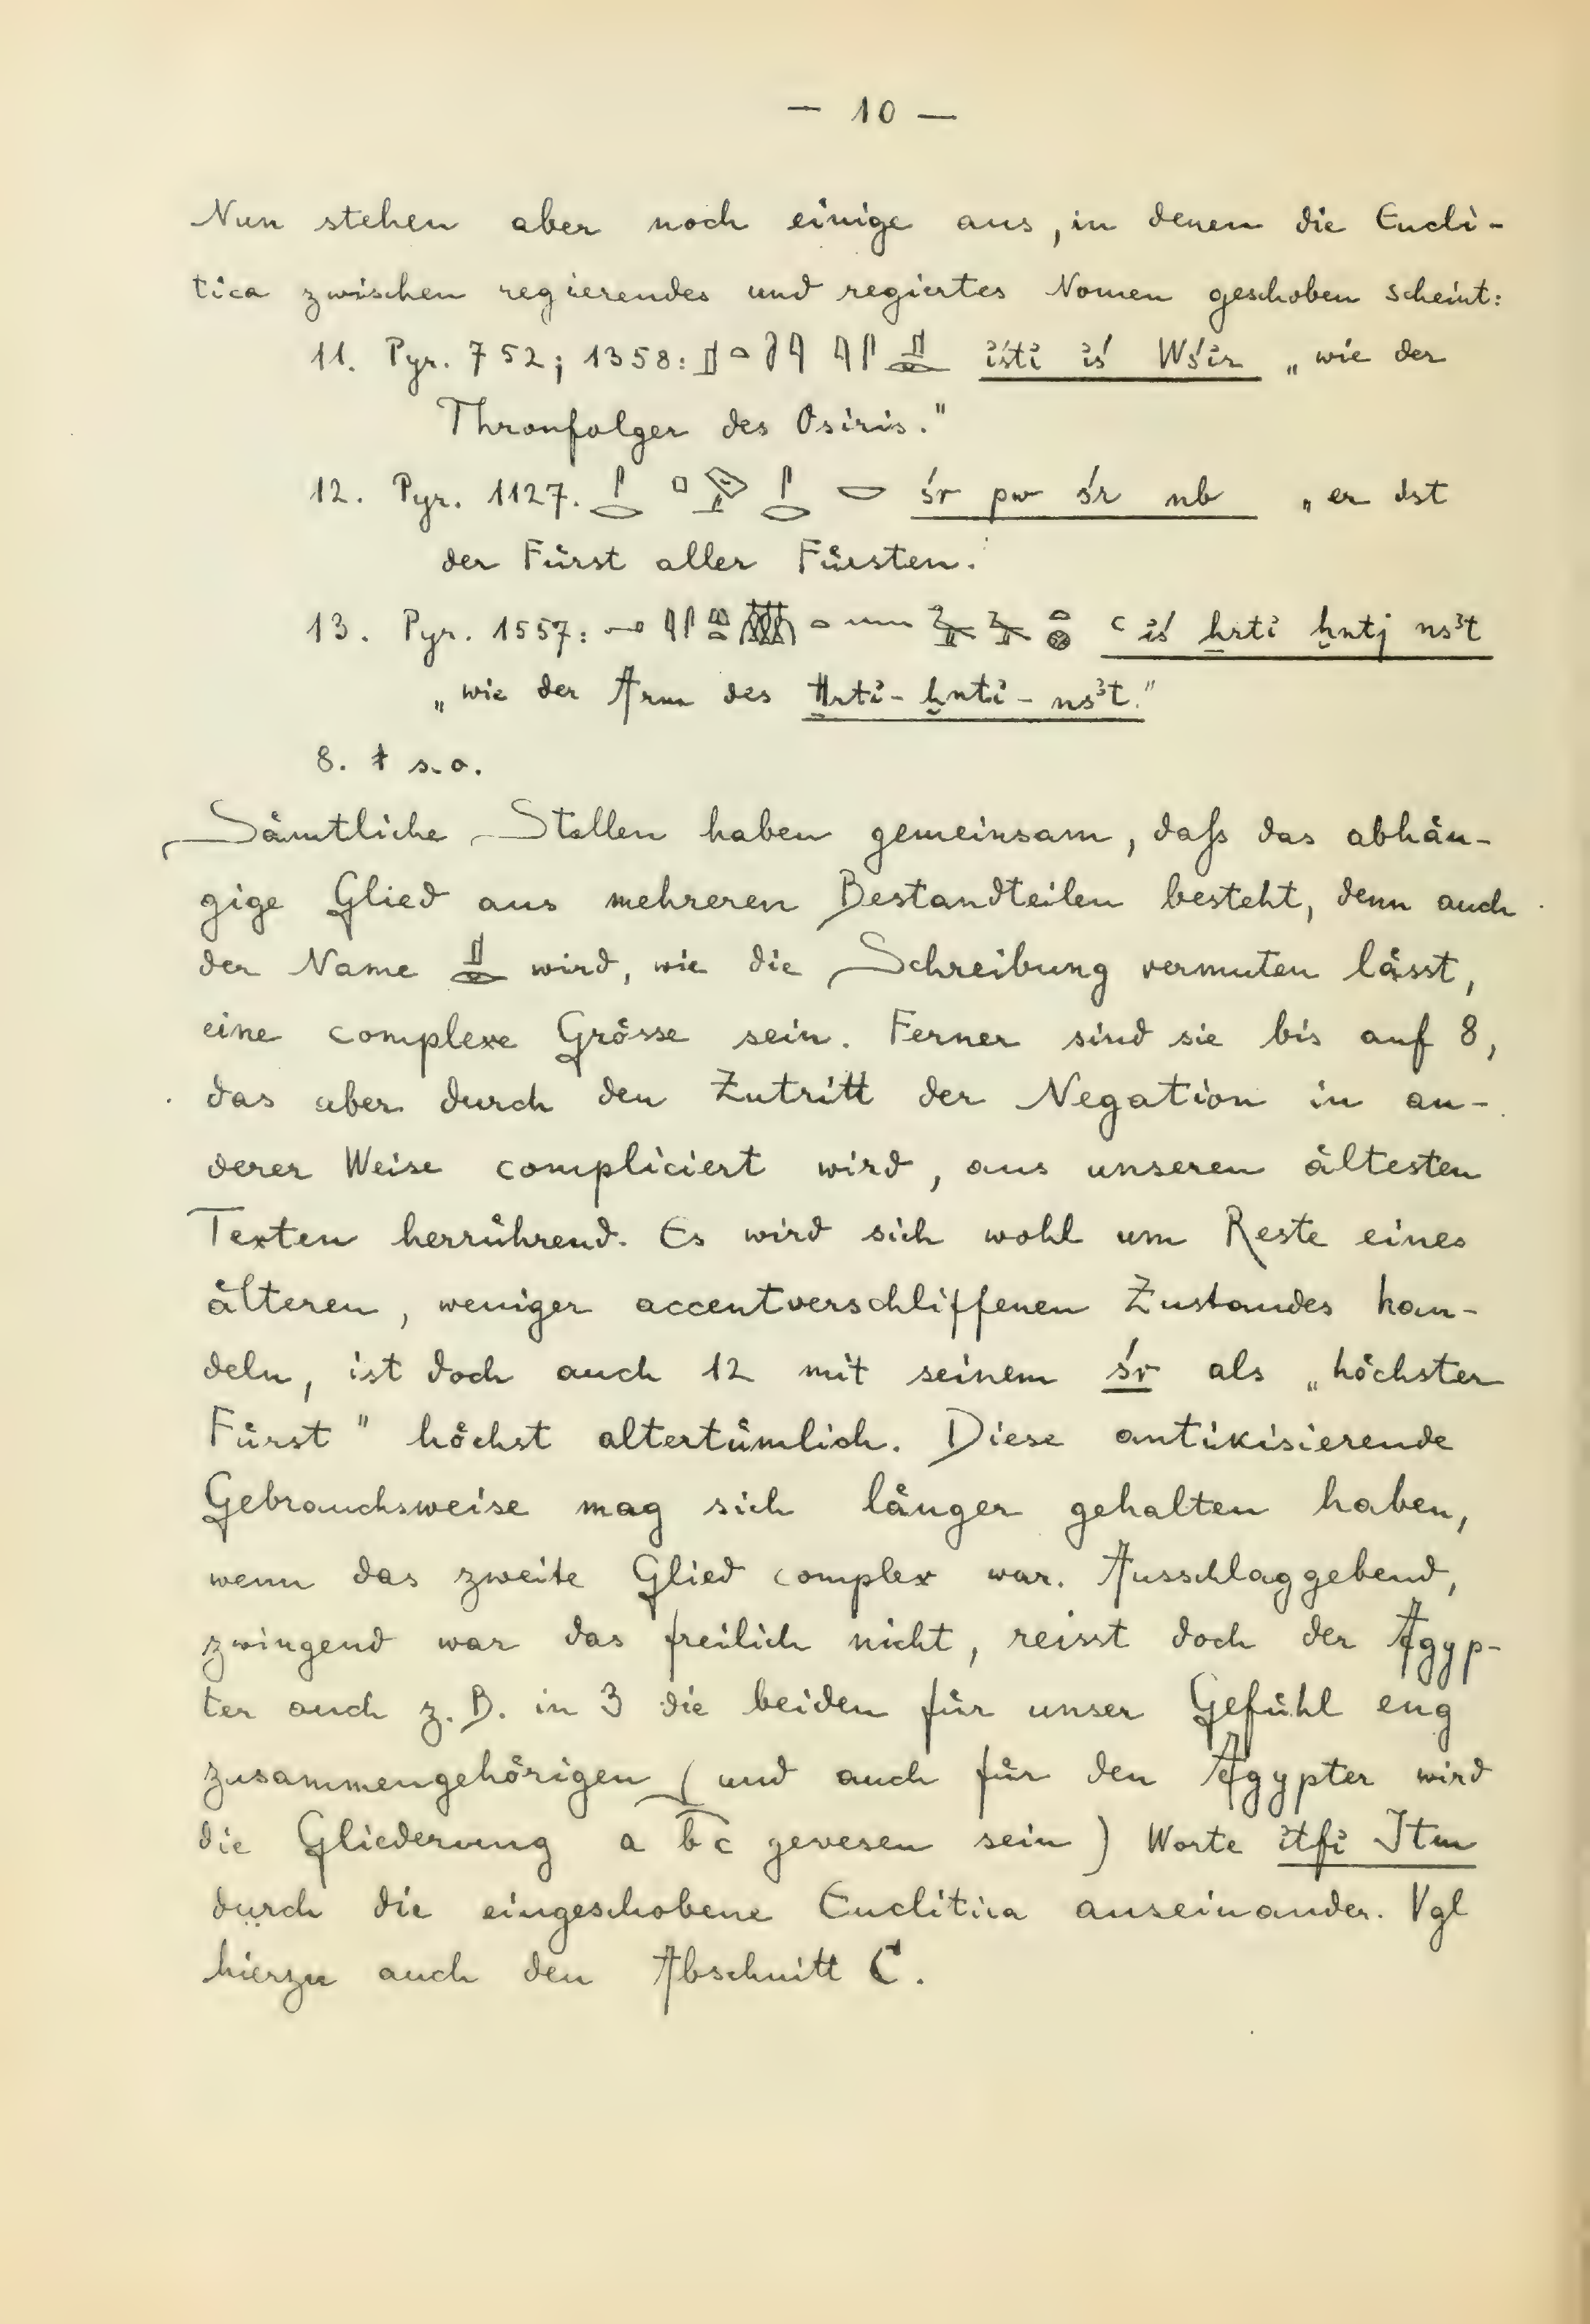 — 10 —
Nun stehen aber noch einige aus, in denen die Encli-
tica zwischen regierendes und regiertes Nomen geschoben scheint:
11. Pyr. 752; 1358: i҆śti҆ i҆ś Wśi҆r „wie der
Thronfolger des Osiris."
12. Pyr. 1127. śr pw śr nb „er ist
der Fürst aller Fürsten.
13. Pyr. 1557: ꜥ i҆ś ẖrti҆ ḫntj nsꜣt
„wie der Arm des Ḫrti҆-ḫnti҆-nsꜣt."
8. s.o.
Sämtliche Stellen haben gemeinsam, daß das abhän-
gige Glied aus mehreren Bestandteilen besteht, denn auch
der Name 𓊨𓁹 wird, wie die Schreibung vermuten lässt,
eine complexe Grösse sein. Ferner sind sie bis auf 8,
das aber durch den Zutritt der Negation in an-
derer Weise compliciert wird, aus unseren ältesten
Texten herrührend. Es wird sich wohl um Reste eines
älteren, weniger accentverschliffenen Zustandes han-
deln, ist doch auch 12 mit seinem śr als „höchster
Fürst" höchst altertümlich. Diese antikisierende
Gebrauchsweise mag sich länger gehalten haben,
wenn das zweite Glied complex war. Ausschlaggebend,
zwingend war das freilich nicht, reisst doch der Ägyp-
ter auch z.B. in 3 die beiden für unser Gefühl eng
zusammengehörigen (und auch für den Ägypter wird
die Gliederung a bc gewesen sein) Worte i҆tfi҆ Jtm
durch die eingeschobene Enclitica auseinander. Vgl
hierzu auch den Abschnitt C.